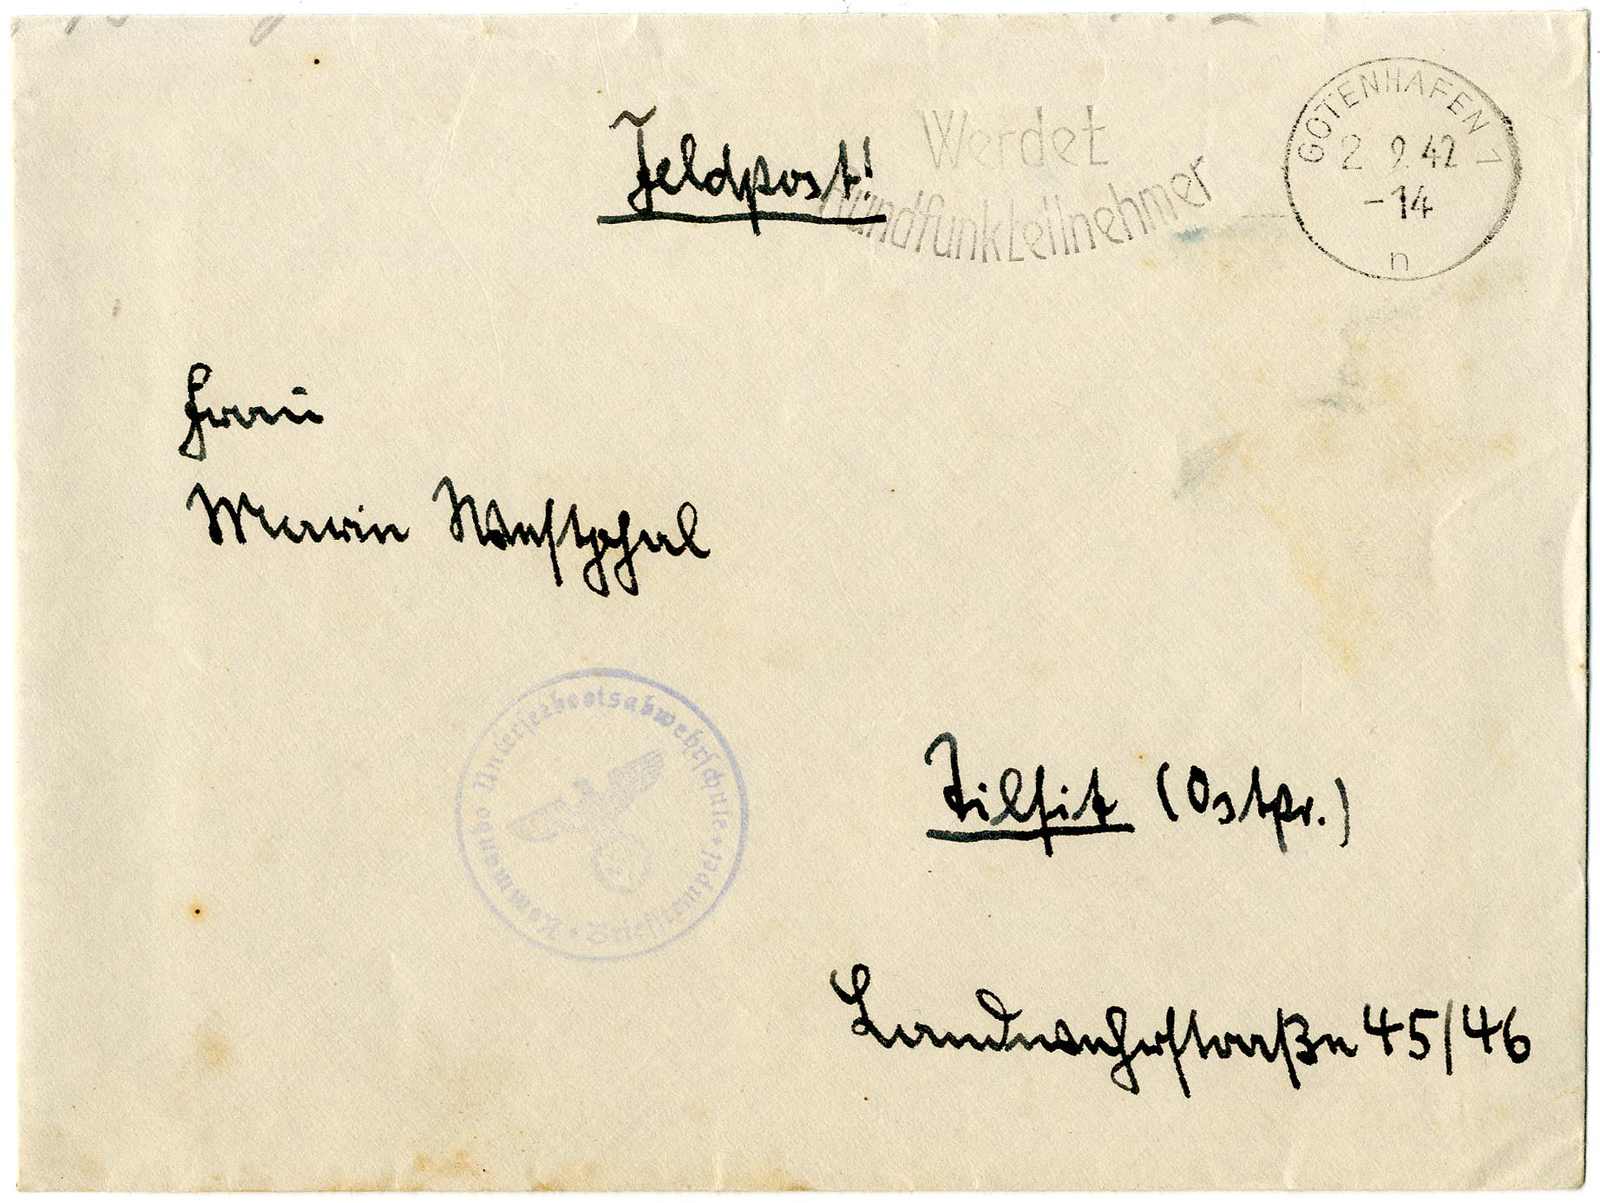 Feldpost!
Werdet
Rundfunkteilnehmer
GOTENHAFEN 1
2.9.42
-14
n
Frau
Marie Westphal
Kommando Unterseebootsabwehrschule
Briefstempel
Tilsit (Ostpr.)
Landwehrstraße 45/46